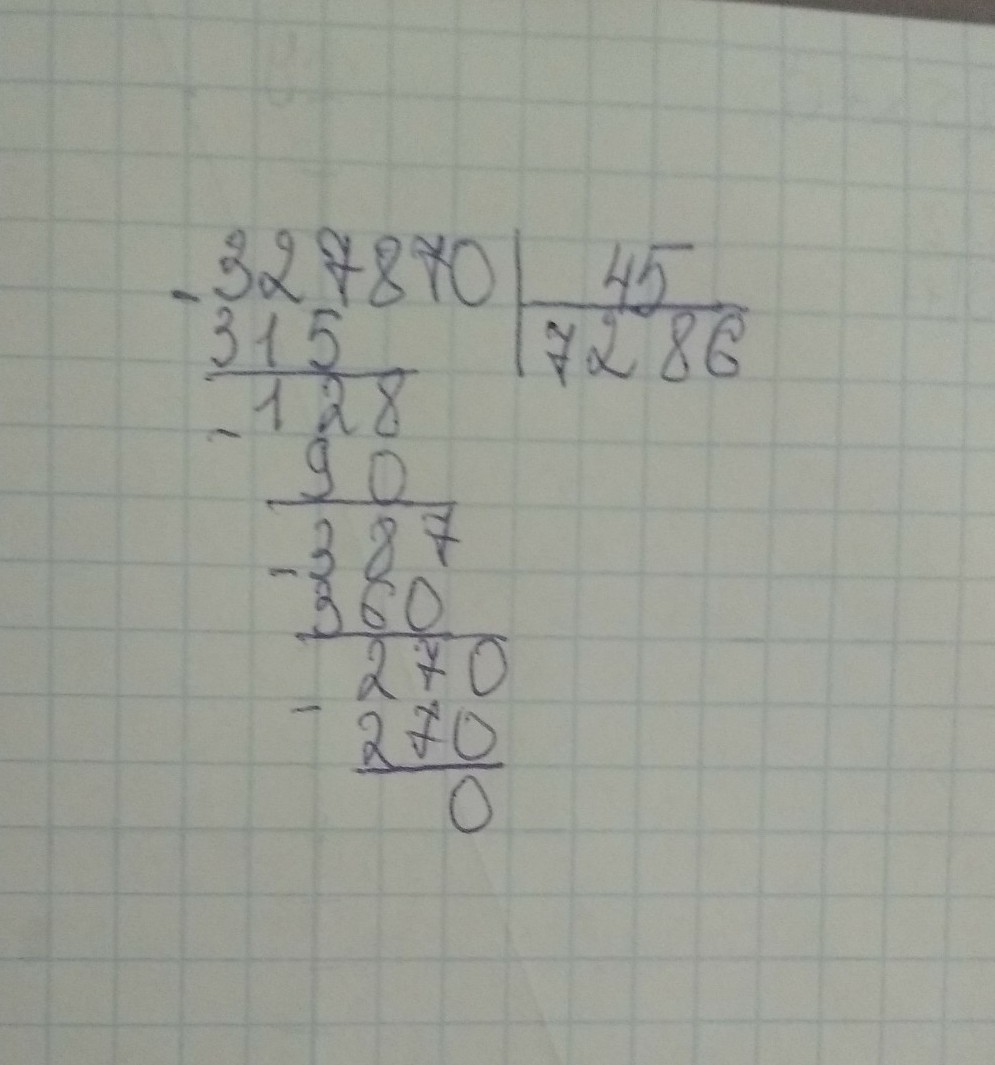 - 327870 | 45
315 | 7286
- 128
90
- 387
360
270
- 270
0